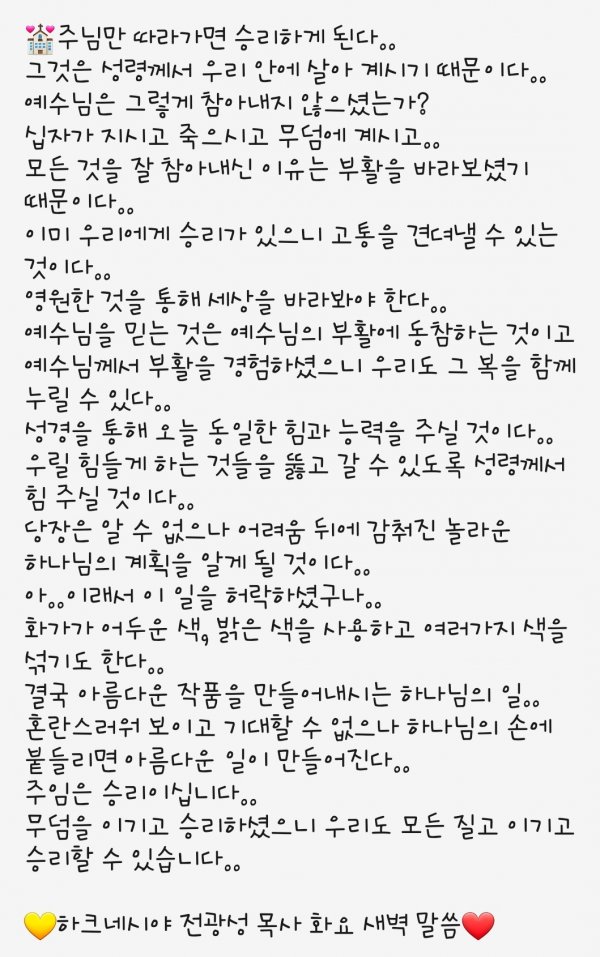 💒주님만 따라가면 승리하게 된다..
그것은 성령께서 우리 안에 살아 계시기 때문이다..
예수님은 그렇게 참아내지 않으셨는가?
십자가 지시고 죽으시고 무덤에 계시고..
모든 것을 잘 참아내신 이유는 부활을 바라보셨기
때문이다..
이미 우리에게 승리가 있으니 고통을 견뎌낼 수 있는
것이다..
영원한 것을 통해 세상을 바라봐야 한다..
예수님을 믿는 것은 예수님의 부활에 동참하는 것이고
예수님께서 부활을 경험하셨으니 우리도 그 복을 함께
누릴 수 있다..
성경을 통해 오늘 동일한 힘과 능력을 주실 것이다..
우릴 힘들게 하는 것들을 뚫고 갈 수 있도록 성령께서
힘 주실 것이다..
당장은 알 수 없으나 어려움 뒤에 감춰진 놀라운
하나님의 계획을 알게 될 것이다..
아..이래서 이 일을 허락하셨구나..
화가가 어두운 색, 밝은 색을 사용하고 여러가지 색을
섞기도 한다..
결국 아름다운 작품을 만들어내시는 하나님의 일..
혼란스러워 보이고 기대할 수 없으나 하나님의 손에
붙들리면 아름다운 일이 만들어진다..
주임은 승리이십니다..
무덤을 이기고 승리하셨으니 우리도 모든 질고 이기고
승리할 수 있습니다..
💛하크네시야 전광성 목사 화요 새벽 말씀❤️